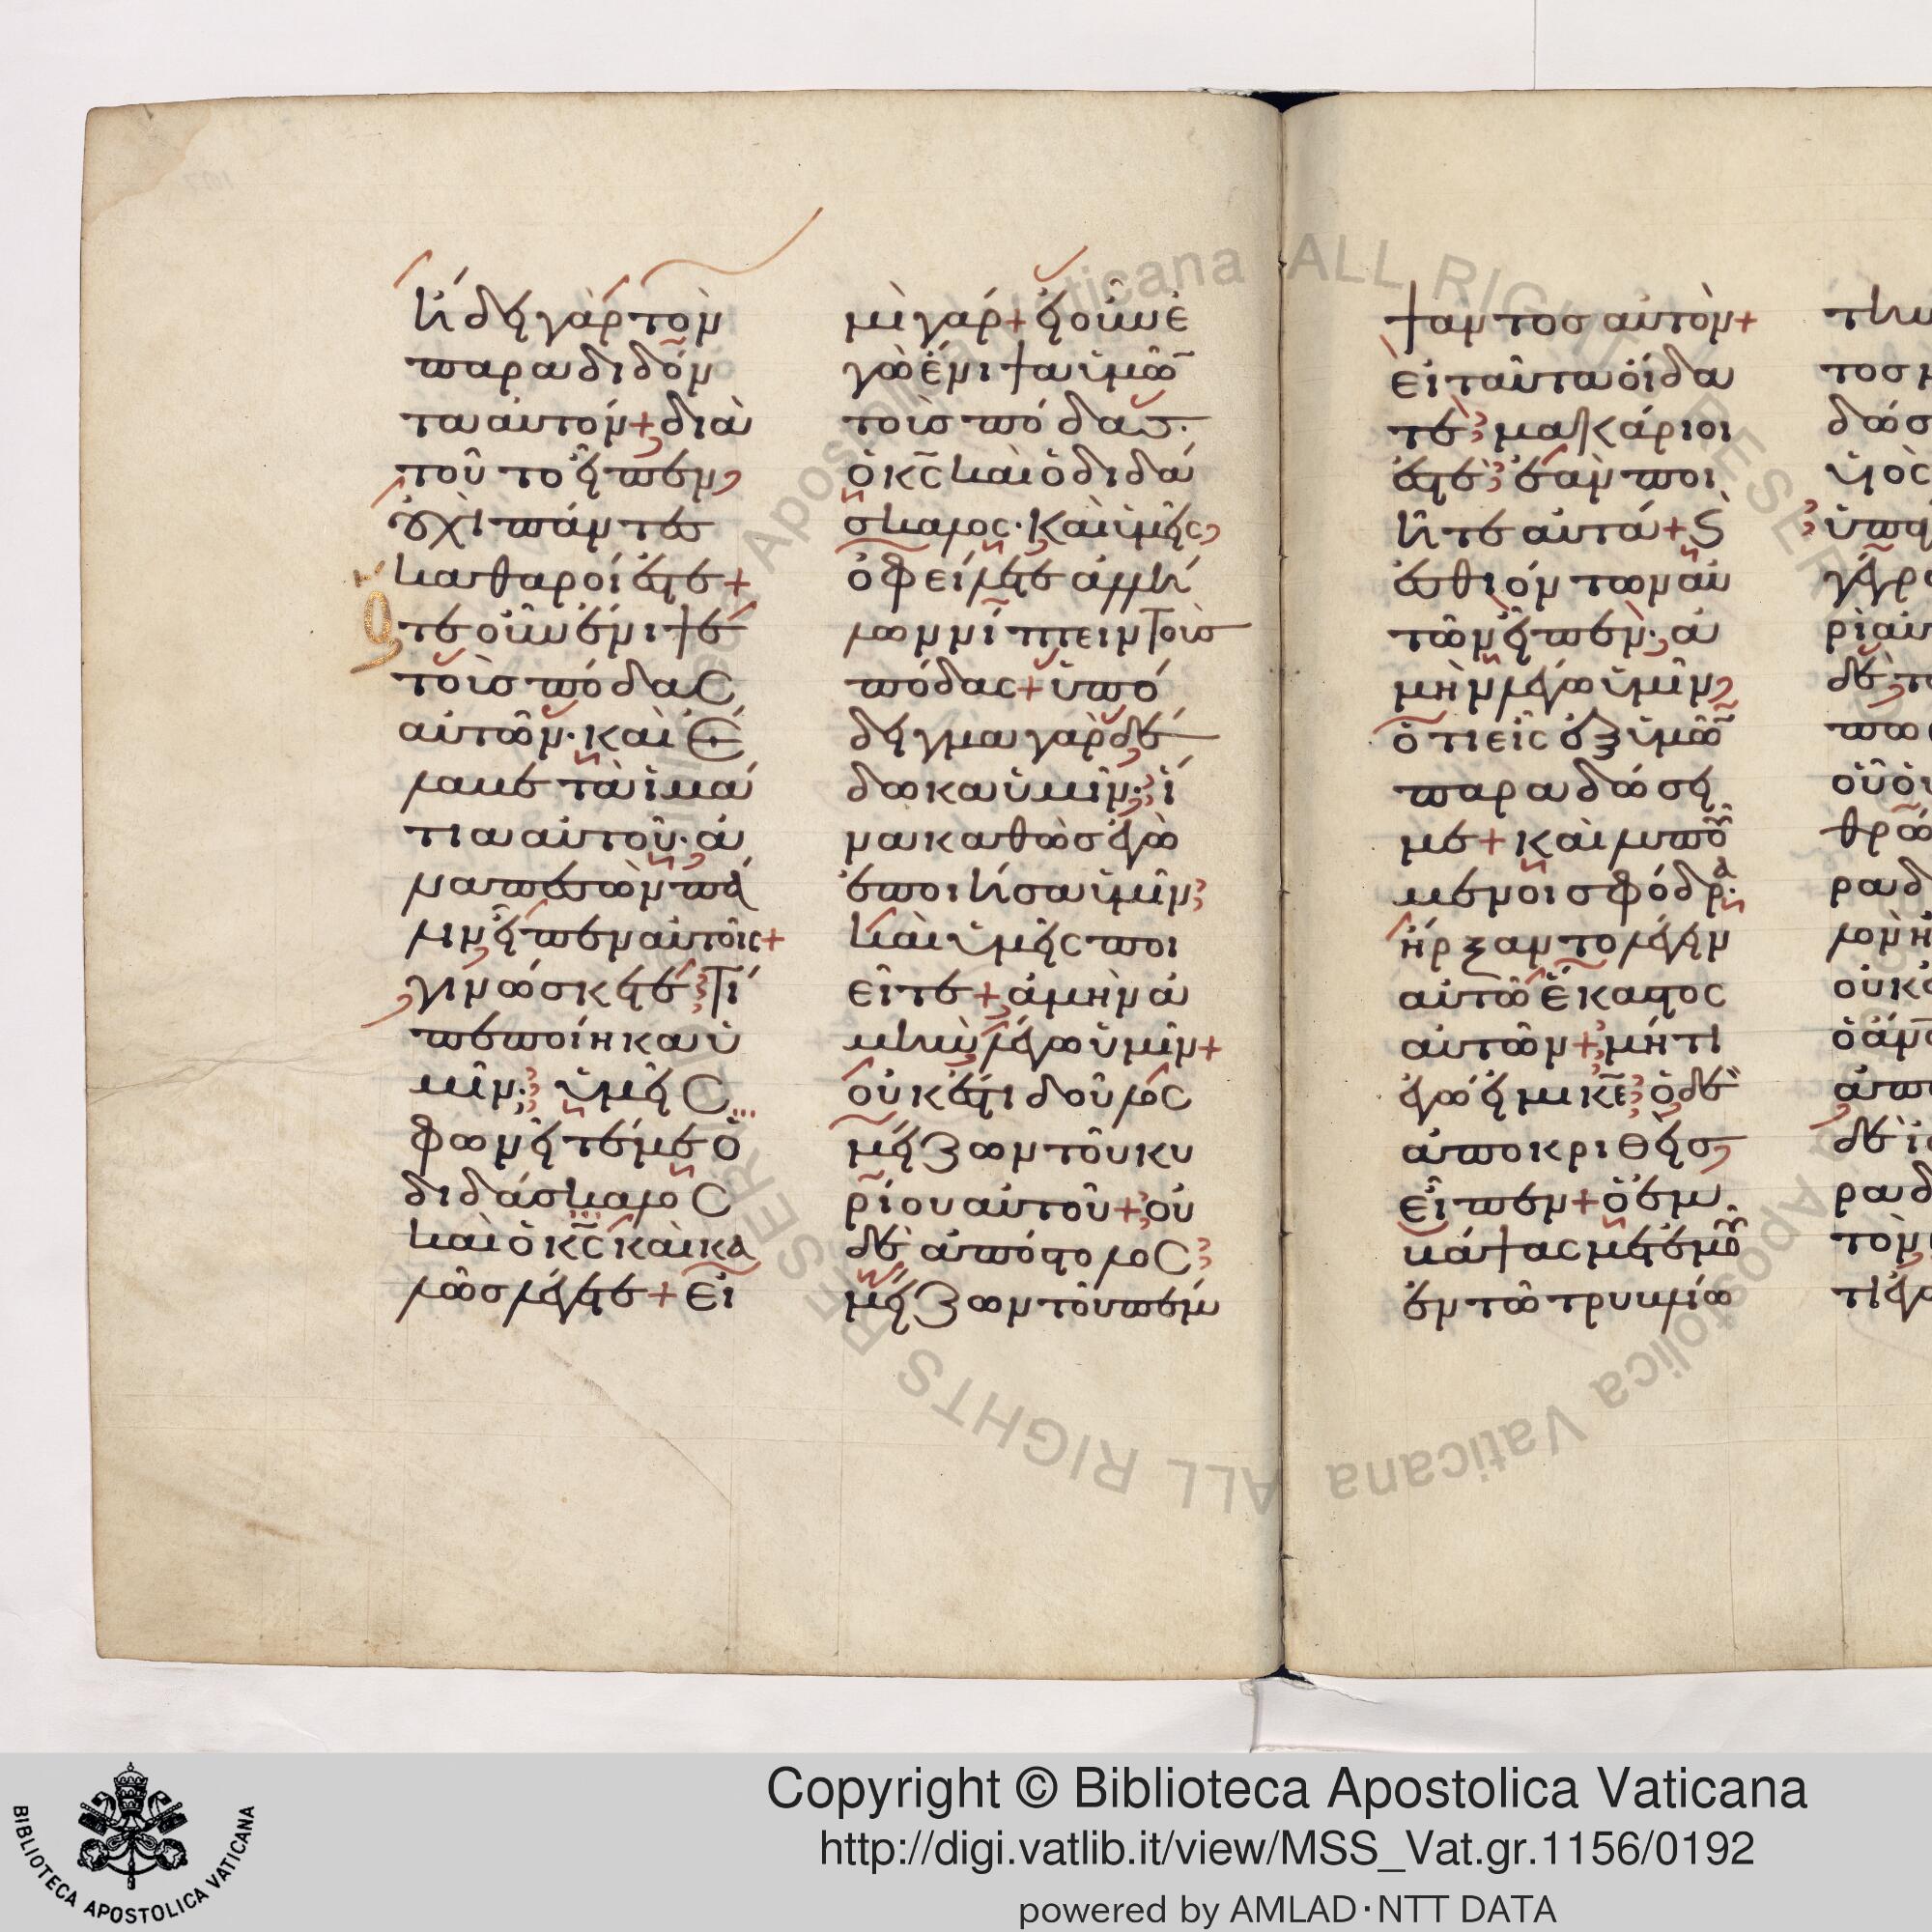 ἤδει γὰρ τὸν
παραδιδόν
τα αὐτόν + διὰ
τοῦτο εἶπεν,
οὐχὶ πάντες
καθαροί ἐστε +
ὅτε οὖν ἔνιψε
τοὺς πόδας
αὐτῶν · καὶ ἔ
λαβε τὰ ἱμά
τια αὐτοῦ · ἀ
ναπεσὼν πά
λιν, εἶπεν αὐτοῖς +
γινώσκετε τί
πεποίηκα ὑ
μῖν; ὑμεῖς
φωνεῖτέ με ὁ
διδάσκαλος
καὶ ὁ κ̅ς̅ καὶ κα
λῶς λέγετε + εἰ
μὶ γάρ + εἰ οὖν ἐ
γὼ ἔνιψα ὑμῶ̅
τοὺς πόδας ·
ὁ κ̅ς̅ καὶ ὁ διδά
σκαλος · καὶ ὑμεῖς,
ὀφείλετε ἀλλή
λων νίπτειν τοὺς
πόδας + ὑπό
δειγμα γὰρ δέ
δωκα ὑμῖν · ἵ
να καθὼς ἐγὼ
ἐποίησα ὑμῖν
καὶ ὑμεῖς ποι
εῖτε + ἀμὴν ἀ
μὴν λέγω ὑμῖν +
οὐκ ἔστι δοῦλος
μείζων τοῦ κυ
ρίου αὐτοῦ + οὐ
δὲ ἀπόστολος
μείζων τοῦ πέμ
ψαντος αὐτὸν +
εἰ ταῦτα οἴδα
τε μακάριοί
ἐστε ἐὰν ποι
ῆτε αὐτά + Καὶ
ἐσθιόντων αὐ
τῶν εἶπεν · ἀ
μὴν λέγω ὑμῖν,
ὅτι εἷς ἐξ ὑμῶ̅
παραδώσει
με + καὶ λυπού
μενοι σφόδρα ·
ἤρξαντο λέγειν
αὐτῶ ἕκαστος
αὐτῶν + μήτι
ἐγώ εἰμι κ̅ε̅ ὁ δὲ
ἀποκριθεὶς
εἶπεν + ὁ ἐμ
βάψας μετ' ἐμοῦ
ἐν τῶ τρυβλίω
Copyright © Biblioteca Apostolica Vaticana
http://digi.vatlib.it/view/MSS_Vat.gr.1156/0192
powered by AMLAD·NTT DATA
BIBLIOTECA APOSTOLICA VATICANA